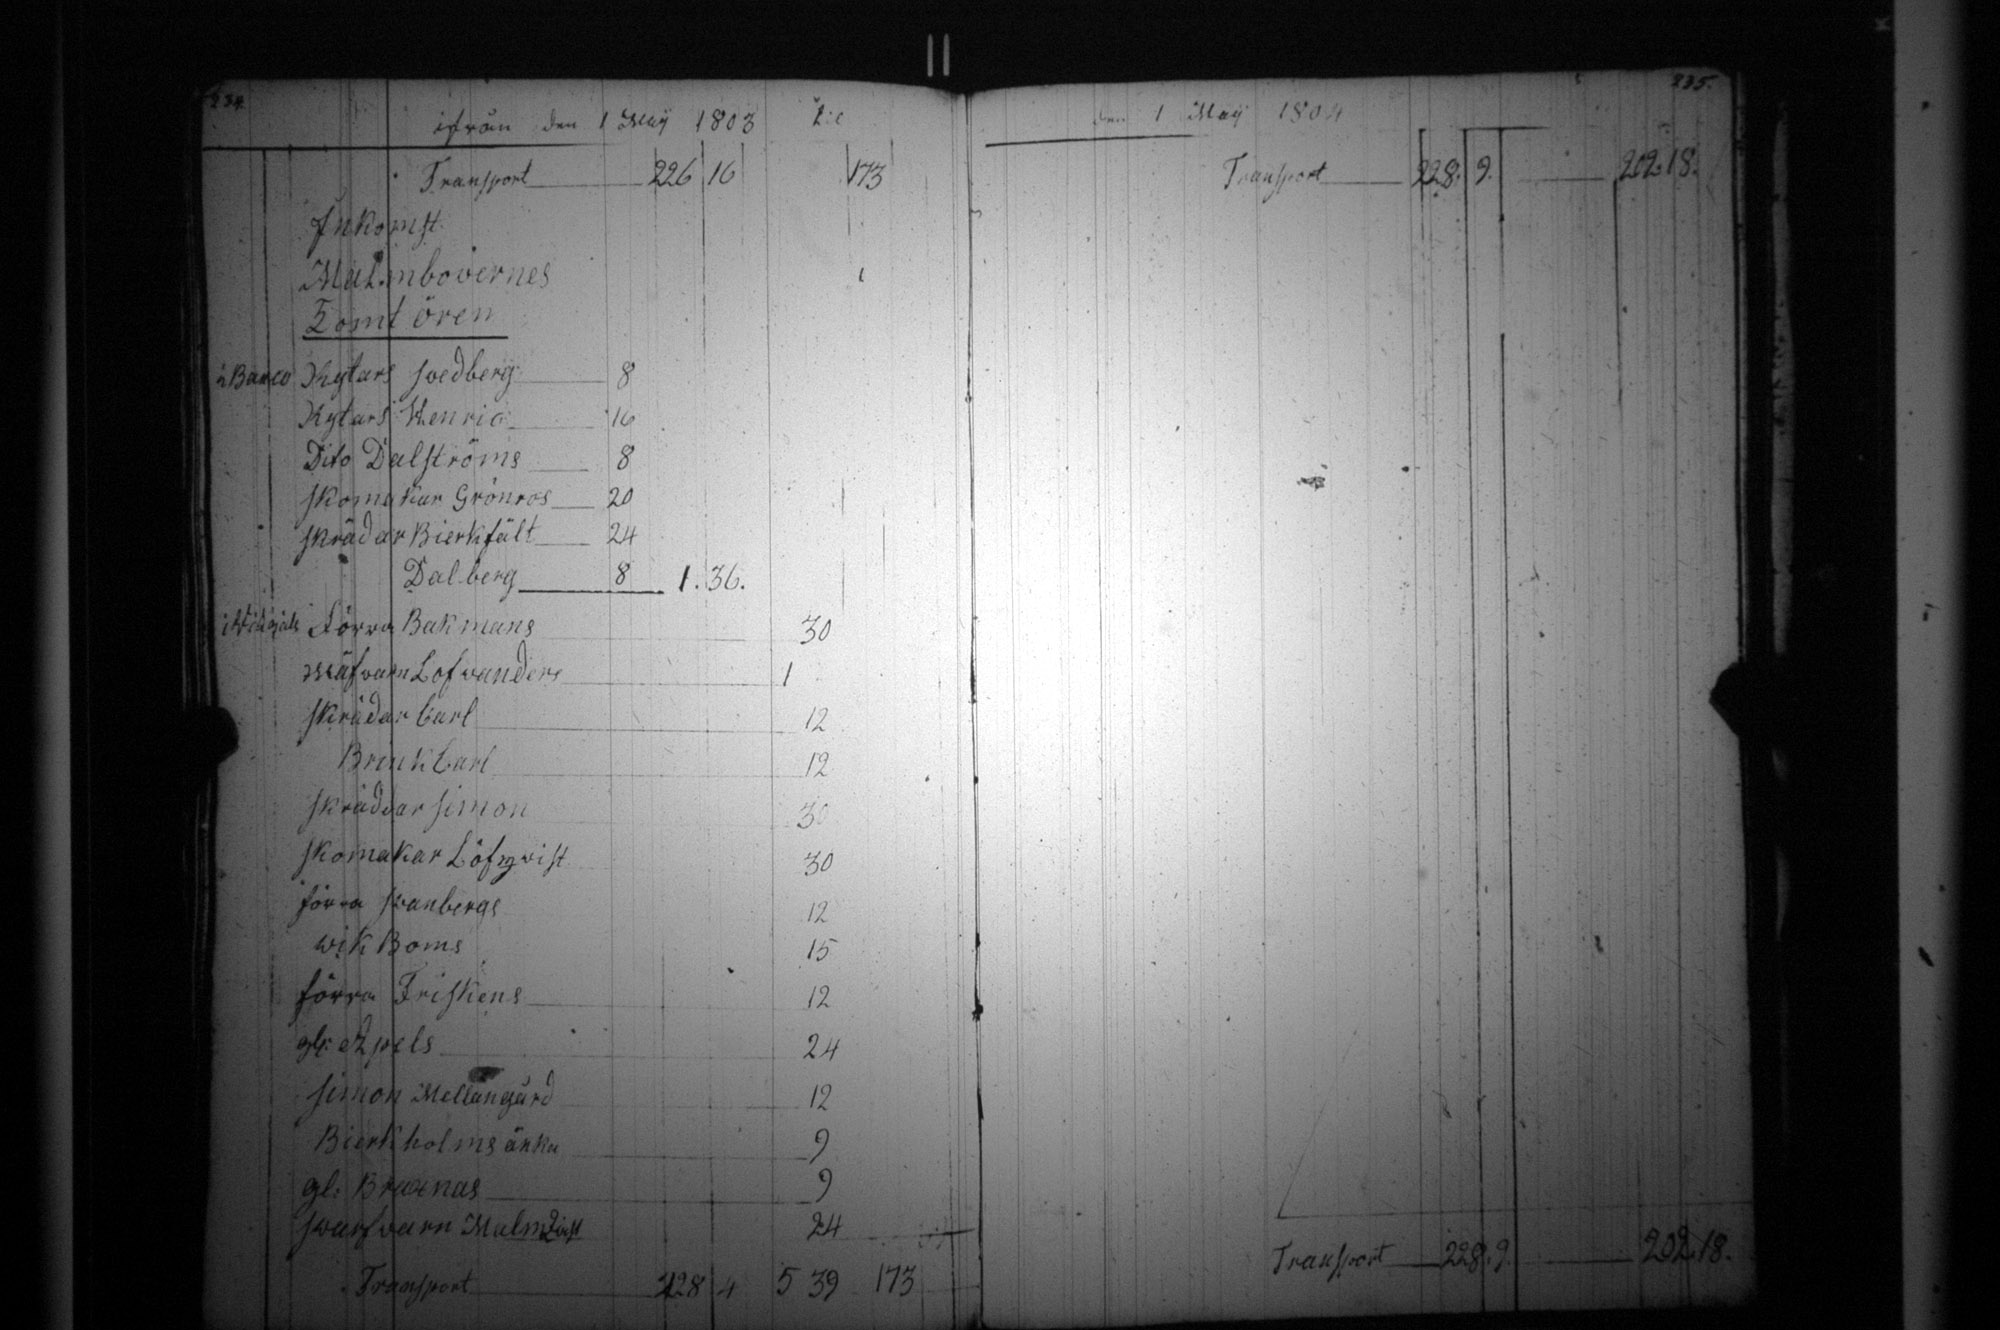 234.
ifrån den 1 Maÿ 1803 til
Transport 226 16 173
Inkomst
Malmbovernes
Tomt ören
i Banco Rytars Svedberg 8
Rytars Henric 16
Dito Dalströms 8
Skomakar Grönros 20
Skrädar Bierkfält 24
Dalberg 8 1. 36.
förra Bakmans 30
Löfvanders 1
Skrädar Carl 12
Carl 12
Skräddar Simon 30
Skomakar Löfqvist 30
förra Svanbergs 12
wik Boms 15
förra Friskens 12
gl: 24
Simon Mellangård 12
Bierkholms änka 9
gl: 9
Svarfvarn Malmqvist 24
Transport 228 4 5 39 173
235.
den 1 Maÿ 1804
Transport 228. 9. 202. 18.
Transport 228. 9. 202. 18.